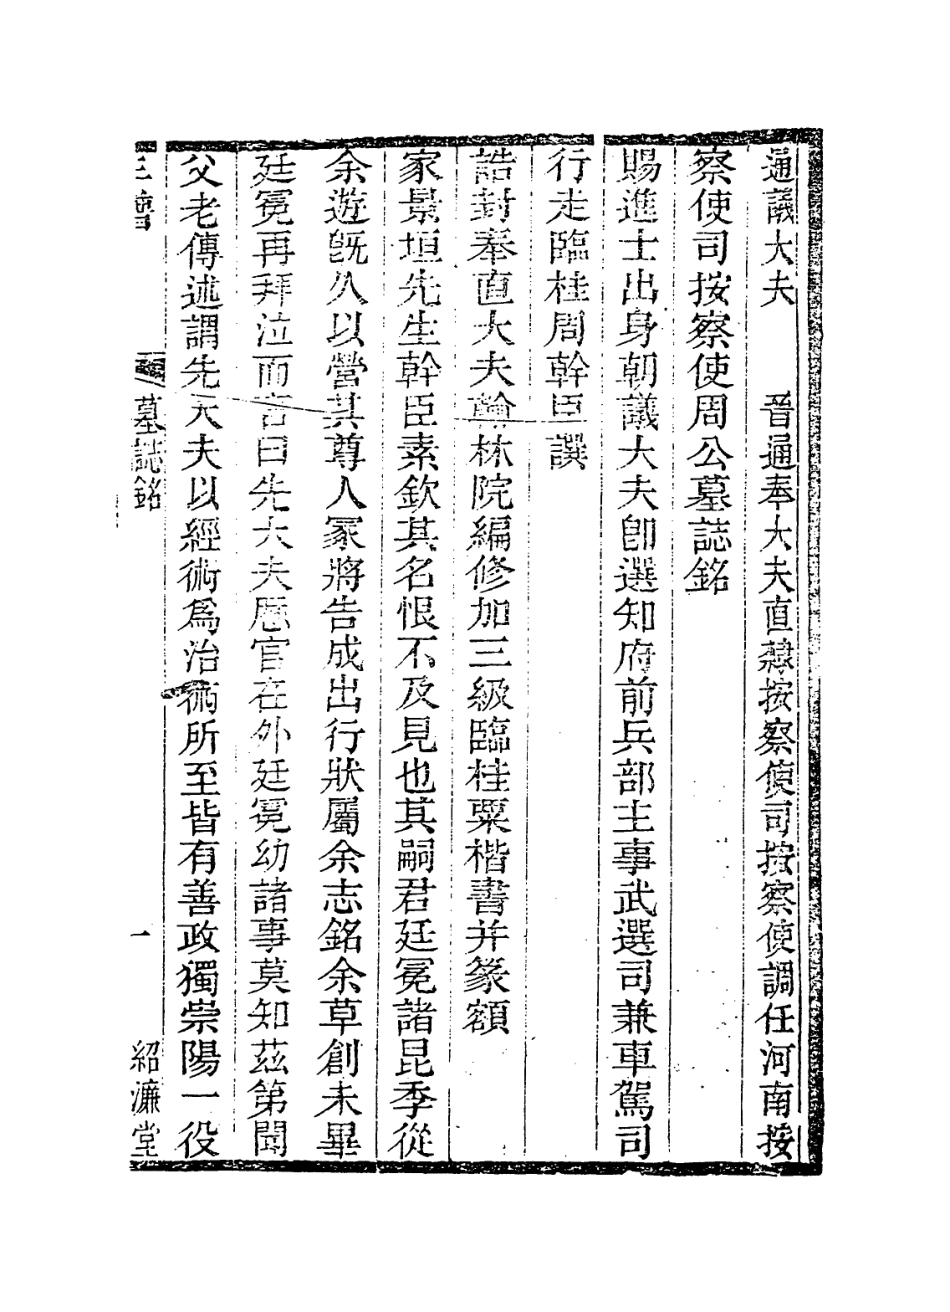 通議大夫　　晉通奉大夫直隸按察使司按察使調任河南按
察使司按察使周公墓誌銘
賜進士出身朝議大夫卽選知府前兵部主事武選司兼車駕司
行走臨桂周幹臣譔
誥封奉直大夫翰林院編修加三級臨桂粟楷書并篆額
家景垣先生幹臣素欽其名恨不及見也其嗣君廷冕諸昆季從
余遊旣久以營其尊人冢將告成出行狀屬余志銘余草創未畢
廷冕再拜泣而言曰先大夫歷官在外廷冕幼諸事莫知茲第聞
父老傳述謂先大夫以經術爲治術所至皆有善政獨崇陽一役
墓誌銘　一　紹濂堂